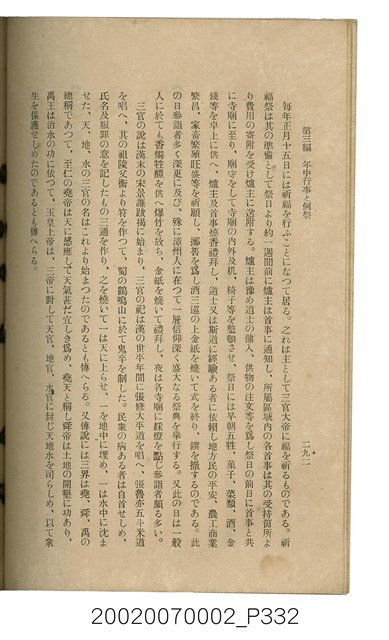 第三編 年中行事と例祭
二九二
每年正月十五日には祈福を行ふことになつて居る。之れは主として三官大帝に福を祈るものである。祈
福祭は其の準備として祭日より約一週間前に爐主は首事に通知し、所屬區域內の各首事は其の受持個所よ
り費用の寄附を受け爐主に送附する。爐主は豫め道士の傭人、供物の注文等を爲し祭日の前日に首事と共
に寺廟に至り、廟守をして寺廟の內外及机、椅子等を整頓させ、祭日には早朝五牲、菓子、菜類、酒、金
錢等を卓上に供へ、爐主及首事燒香禮拜し、道士又は斯道に經驗ある者に依賴し地方民の平安、農工商業
繁昌、家畜繁殖旺盛等を祈願し、擲筶を爲し酒三巡の上金紙を燒いて式を終り、饌を撤するのである。此
の日參詣者多く深更に及び、殊に漳州人に在つて一層信仰深く盛大なる祭典を擧行する。又此の日は一般
人に於ても香燭牲醴を供へ爆竹を放ち、金紙を燒いて禮拜し、夜は各寺廟に綵燈を點じ參詣者頗る多い。
三官の說は漢末の宋景濂跋揭に始まり、三官の祀は漢の世半年間に張修太平道を唱へ、張魯亦五斗米道
を唱へ、其の祖陵父衡より符を作つて、蜀の鶴鳴山に於て鬼卒を制した。民衆の病ある者は自首せしめ、
氏名及服罪の意を記したもの三通を作り、之を燒いて一は天に上らせ、一を地中に埋め、一は水中に沈ま
せた、天、地、水の三官の名はこれより始まつたのであるとも傳へる。又傳說には三界は堯、舜、禹の
總稱であつて、至仁の堯帝は天に感應して天氣甚だ宜しき爲め、堯天と稱し舜帝は土地の開墾に功あり、
禹王は治水の功に依つて、玉皇上帝は、三帝に對して天官、地官、水官に封じ天地水を司らしめ、以て衆
生を保護せしめたのであるとも傳へらる。
20020070002_P332